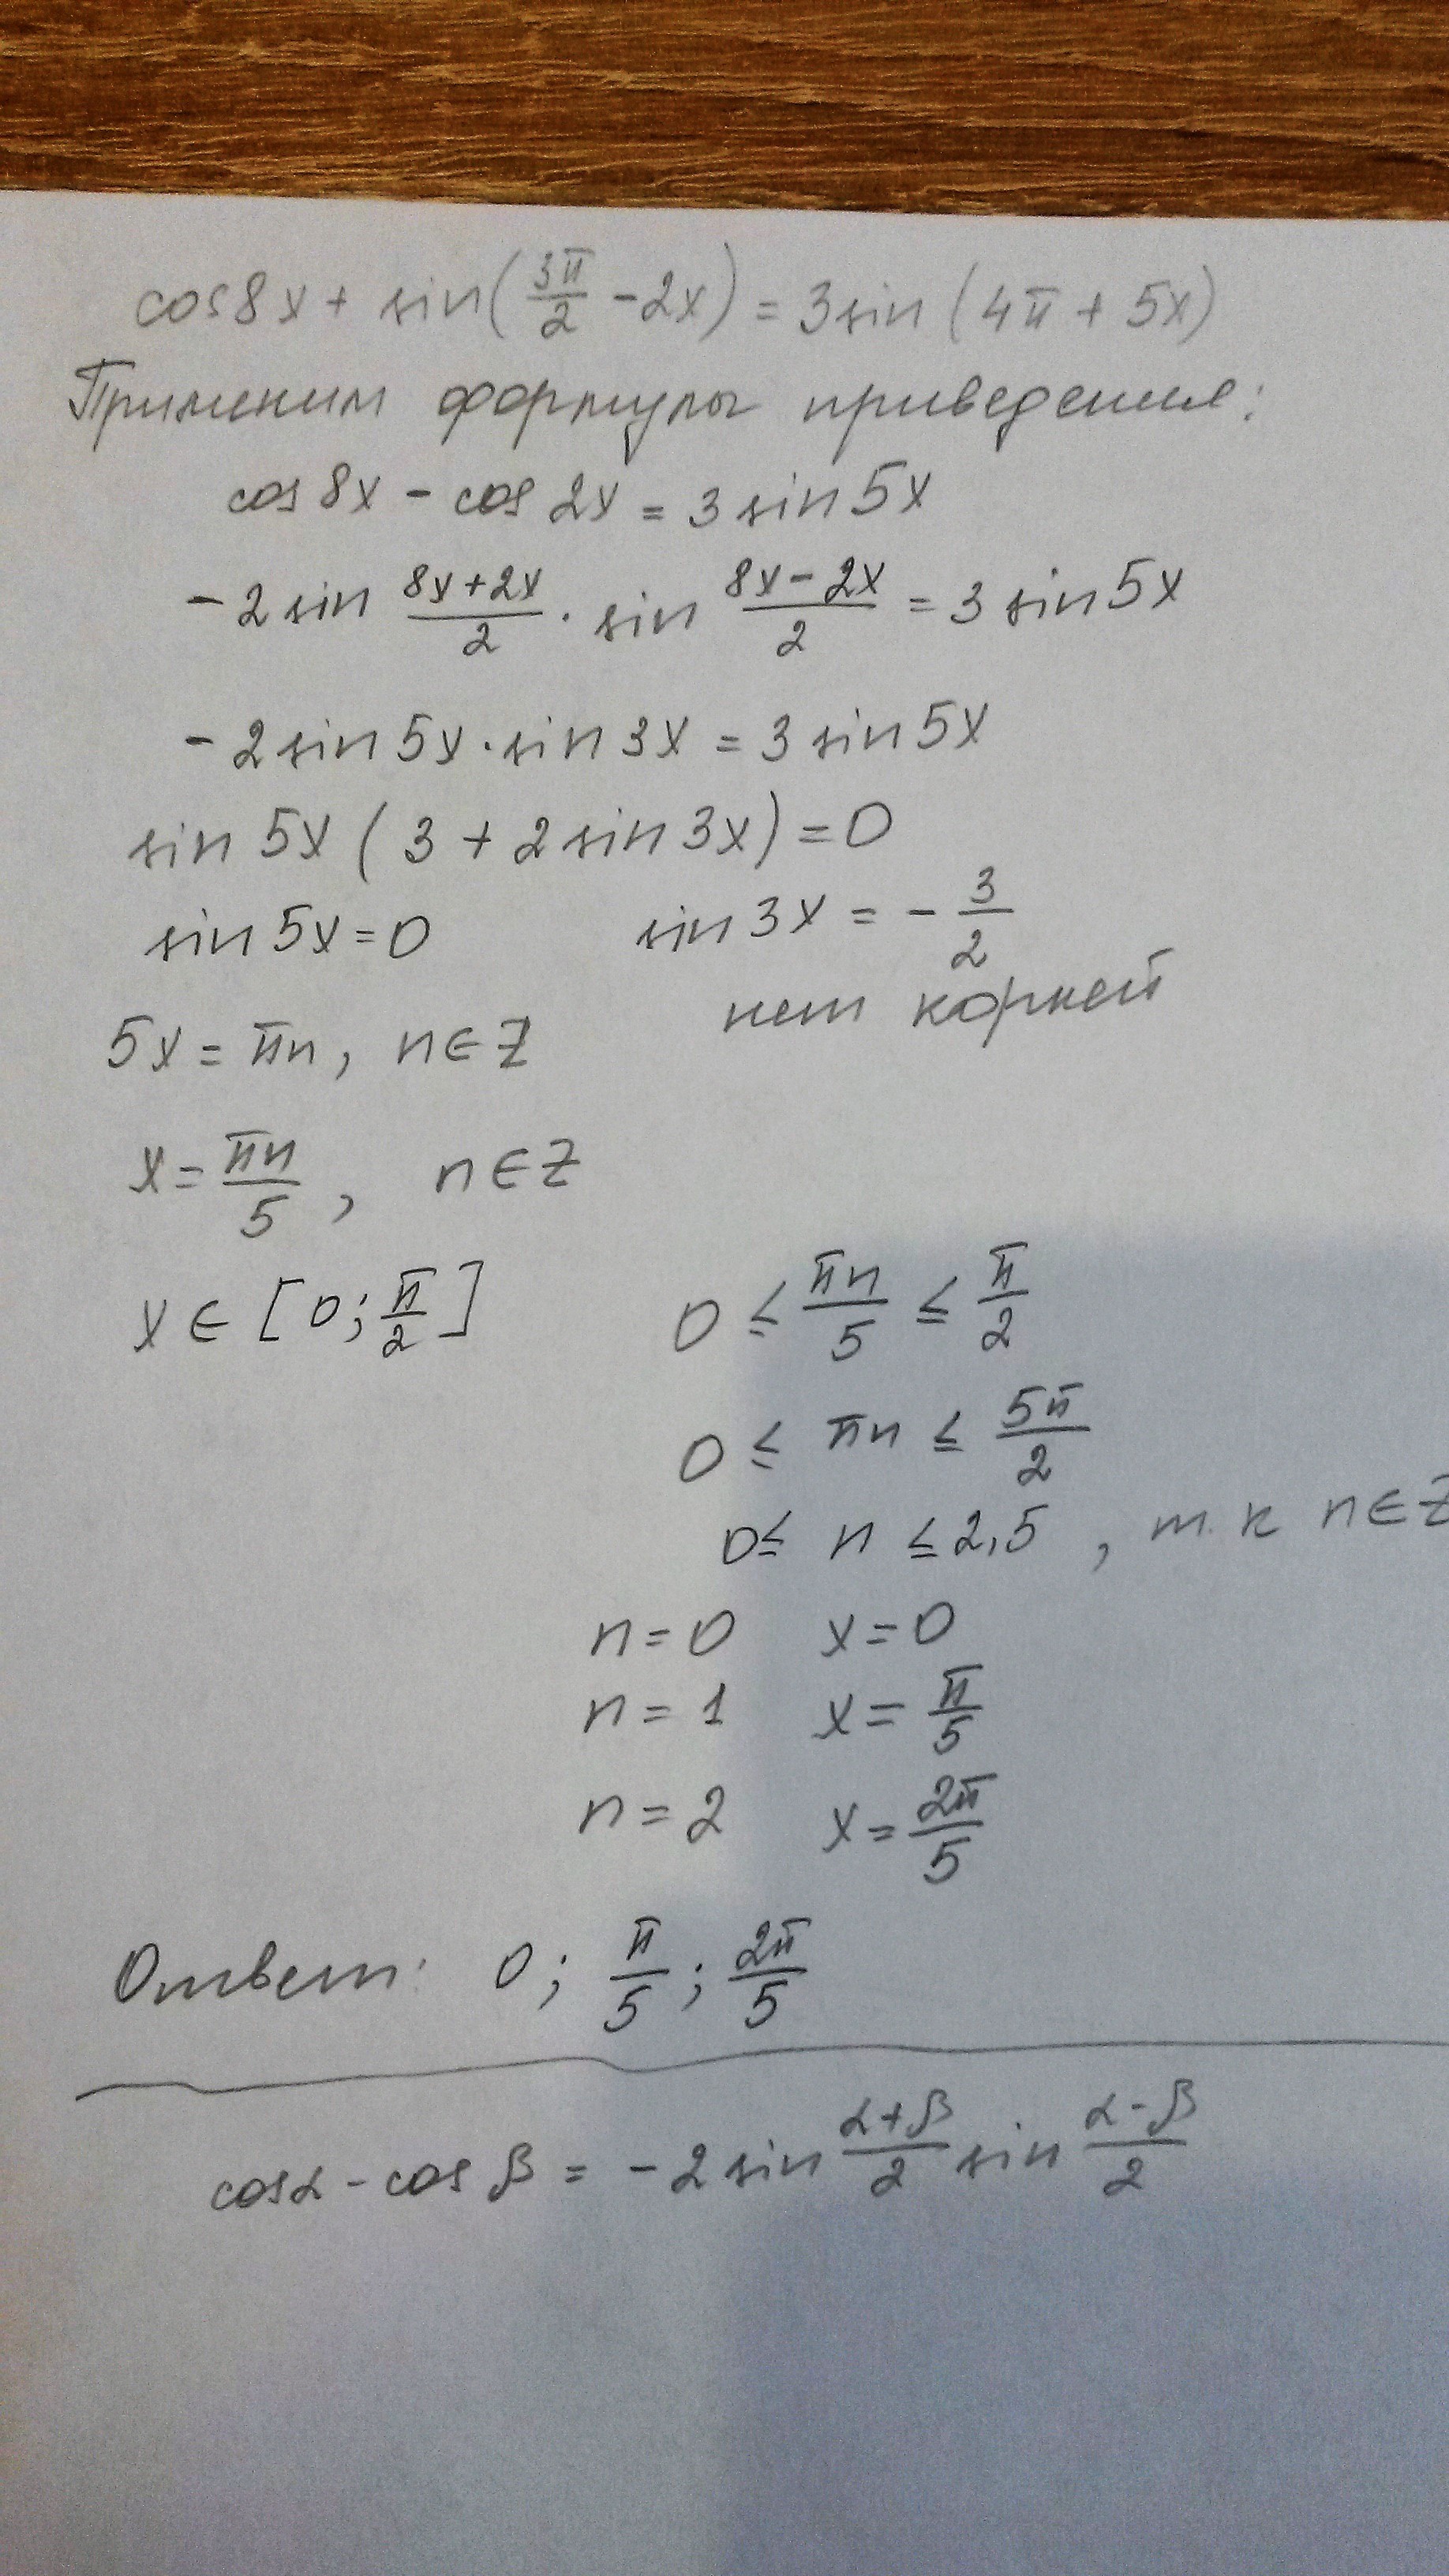 cos8x + sin(3π/2 - 2x) = 3sin(4π + 5x)
Применим формулы приведения:
cos8x - cos2x = 3sin5x
-2sin (8x+2x)/2 · sin (8x-2x)/2 = 3sin5x
-2sin5x·sin3x = 3sin5x
sin5x(3 + 2sin3x) = 0
sin5x = 0 sin3x = -3/2
нет корней
5x = πn, n∈Z
x = πn/5, n∈Z
x∈[0; π/2] 0 ≤ πn/5 ≤ π/2
0 ≤ πn ≤ 5π/2
0 ≤ n ≤ 2,5, т.к n∈Z
n = 0 x = 0
n = 1 x = π/5
n = 2 x = 2π/5
Ответ: 0; π/5; 2π/5
cosα - cosβ = -2sin (α+β)/2 sin (α-β)/2